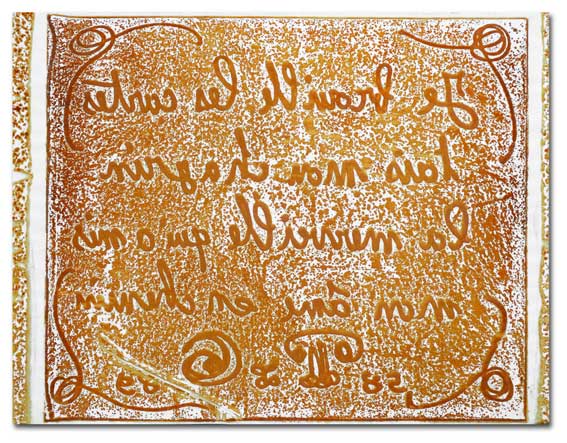 Je brouille les cartes
dans mon chagrin
la merveille qu'a mis
mon âne en chemin